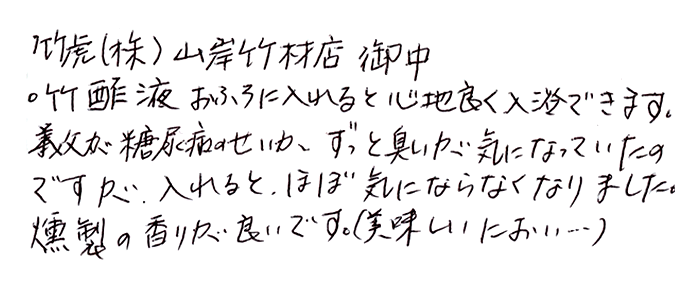 竹虎(株)山岸竹材店 御中
○竹酢液 おふろに入れると心地良く入浴できます。
義父が糖尿病のせいか、ずっと臭いが気になっていたの
ですが、入れると、ほぼ気にならなくなりました。
燻製の香りが良いです。(美味しいにおい…)